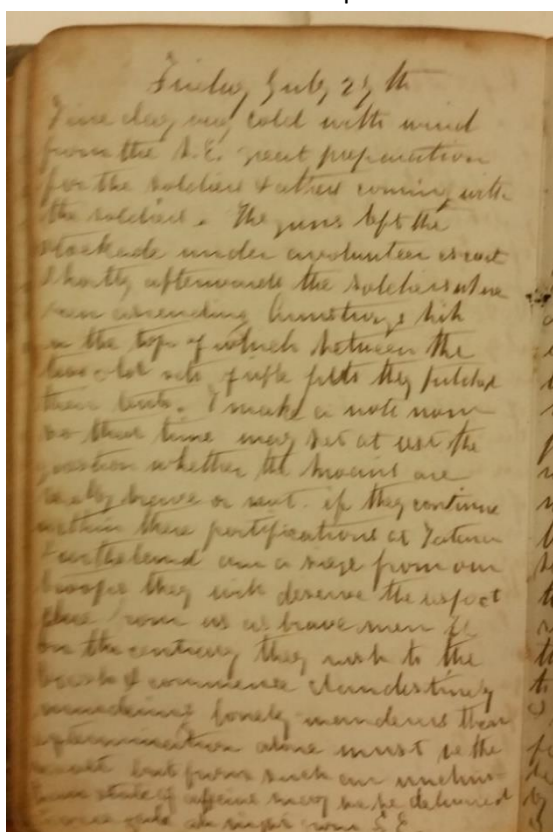 Friday July 29th
Fine day very cold with wind
from the S.E. great preparation
for the soldiers & others coming with
the soldiers. The guns left the
stockade under a volunteer escort
shortly afterwards the soldiers were
seen ascending Armstrongs hill
on the top of which between the
two old rifle pitts they pitched
their tents. I make a note now
so that time may set at rest the
question whether the Maoris are
really brave or not. if they continue
within there fortifications at Tataraimaka
& withstand a siege from our
troops they will deserve the respect
due from us as brave men if
on the contrary they rush to the
bush & commence clandestinely
murdering lonely wanderers then
extermination alone must be the
result but from such an unchris-
tian state of affairs may we be delivered
gale at night from S.E.